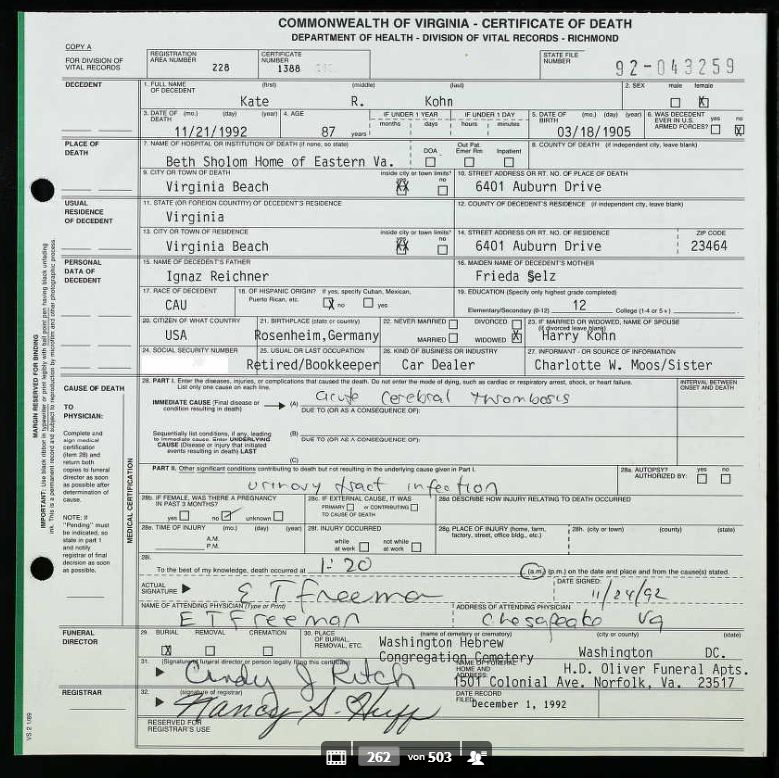 COMMONWEALTH OF VIRGINIA - CERTIFICATE OF DEATH
DEPARTMENT OF HEALTH - DIVISION OF VITAL RECORDS - RICHMOND
COPY A
FOR DIVISION OF VITAL RECORDS
REGISTRATION AREA NUMBER 228
CERTIFICATE NUMBER 1388
STATE FILE NUMBER 92-043259
DECEDENT
1. FULL NAME OF DECEDENT (first) (middle) (last)
Kate R. Kohn
2. SEX male female X
3. DATE OF DEATH (mo.) (day) (year)
11/21/1992
4. AGE 87 years
IF UNDER 1 YEAR months days
IF UNDER 1 DAY hours minutes
5. DATE OF BIRTH (mo.) (day) (year)
03/18/1905
6. WAS DECEDENT EVER IN U.S. ARMED FORCES? yes no X
PLACE OF DEATH
7. NAME OF HOSPITAL OR INSTITUTION OF DEATH (if none, so state)
Beth Sholom Home of Eastern Va.
DOA
Out Pat. Emer Rm
Inpatient
8. COUNTY OF DEATH (if independent city, leave blank)
9. CITY OR TOWN OF DEATH
Virginia Beach
inside city or town limits? yes XX no
10. STREET ADDRESS OR RT. NO. OF PLACE OF DEATH
6401 Auburn Drive
USUAL RESIDENCE OF DECEDENT
11. STATE (OR FOREIGN COUNTRY) OF DECEDENT'S RESIDENCE
Virginia
12. COUNTY OF DECEDENT'S RESIDENCE (if independent city, leave blank)
13. CITY OR TOWN OF RESIDENCE
Virginia Beach
inside city or town limits? yes XX no
14. STREET ADDRESS OR RT. NO. OF RESIDENCE
6401 Auburn Drive
ZIP CODE
23464
PERSONAL DATA OF DECEDENT
15. NAME OF DECEDENT'S FATHER
Ignaz Reichner
16. MAIDEN NAME OF DECEDENT'S MOTHER
Frieda Selz
17. RACE OF DECEDENT
CAU
18. OF HISPANIC ORIGIN? If yes, specify Cuban, Mexican, Puerto Rican, etc.
X no yes
19. EDUCATION (Specify only highest grade completed)
Elementary/Secondary (0-12) 12 College (1-4 or 5+)
20. CITIZEN OF WHAT COUNTRY
USA
21. BIRTHPLACE (state or country)
Rosenheim,Germany
22. NEVER MARRIED DIVORCED
MARRIED WIDOWED X
23. IF MARRIED OR WIDOWED, NAME OF SPOUSE
(if divorced leave blank)
Harry Kohn
24. SOCIAL SECURITY NUMBER
25. USUAL OR LAST OCCUPATION
Retired/Bookkeeper
26. KIND OF BUSINESS OR INDUSTRY
Car Dealer
27. INFORMANT - OR SOURCE OF INFORMATION
Charlotte W. Moos/Sister
CAUSE OF DEATH
TO PHYSICIAN:
Complete and sign medical certification (item 28) and return both copies to funeral director as soon as possible after determination of cause.
NOTE: If "Pending" must be indicated, so state in part 1 and notify registrar of final decision as soon as possible.
MARGIN RESERVED FOR BINDING
MEDICAL CERTIFICATION
28. PART I. Enter the diseases, injuries, or complications that caused the death. Do not enter the mode of dying, such as cardiac or respiratory arrest, shock, or heart failure. List only one cause on each line.
INTERVAL BETWEEN ONSET AND DEATH
IMMEDIATE CAUSE (Final disease or condition resulting in death)
(A) acute cerebral thrombosis
DUE TO (OR AS A CONSEQUENCE OF):
Sequentially list conditions, if any, leading to immediate cause. Enter UNDERLYING CAUSE (Disease or injury that initiated events resulting in death) LAST
(B)
DUE TO (OR AS A CONSEQUENCE OF):
(C)
PART II. Other significant conditions contributing to death but not resulting in the underlying cause given in Part I.
urinary tract infection
28a. AUTOPSY? AUTHORIZED BY: yes no
28b. IF FEMALE, WAS THERE A PREGNANCY IN PAST 3 MONTHS?
yes no unknown
28c. IF EXTERNAL CAUSE, IT WAS
PRIMARY or CONTRIBUTING TO CAUSE OF DEATH
28d DESCRIBE HOW INJURY RELATING TO DEATH OCCURRED
28e. TIME OF INJURY (mo.) (day) (year)
A.M.
P.M.
28f. INJURY OCCURRED
while at work not while at work
28g. PLACE OF INJURY (home, farm, factory, street, office bldg., etc.)
28h. (city or town) (county) (state)
28i.
To the best of my knowledge, death occurred at 1:20 (a.m.) (p.m.) on the date and place and from the cause(s) stated.
ACTUAL SIGNATURE E T Freeman
DATE SIGNED: 11/24/92
NAME OF ATTENDING PHYSICIAN (Type or Print)
E T Freeman
ADDRESS OF ATTENDING PHYSICIAN
Chesapeake Va
FUNERAL DIRECTOR
29. BURIAL X REMOVAL CREMATION
30. PLACE OF BURIAL, REMOVAL, ETC.
(name of cemetery or crematory) (city or county) (state)
Washington Hebrew
Congregation Cemetery Washington DC.
31. (Signature of funeral director or person legally filing this certificate)
Cindy J Ritch
NAME OF FUNERAL HOME AND ADDRESS:
H.D. Oliver Funeral Apts.
1501 Colonial Ave. Norfolk, Va. 23517
REGISTRAR
32. (signature of registrar)
Nancy S. Huff
DATE RECORD FILED:
December 1, 1992
RESERVED FOR REGISTRAR'S USE
VS 2 1/89
262 von 503